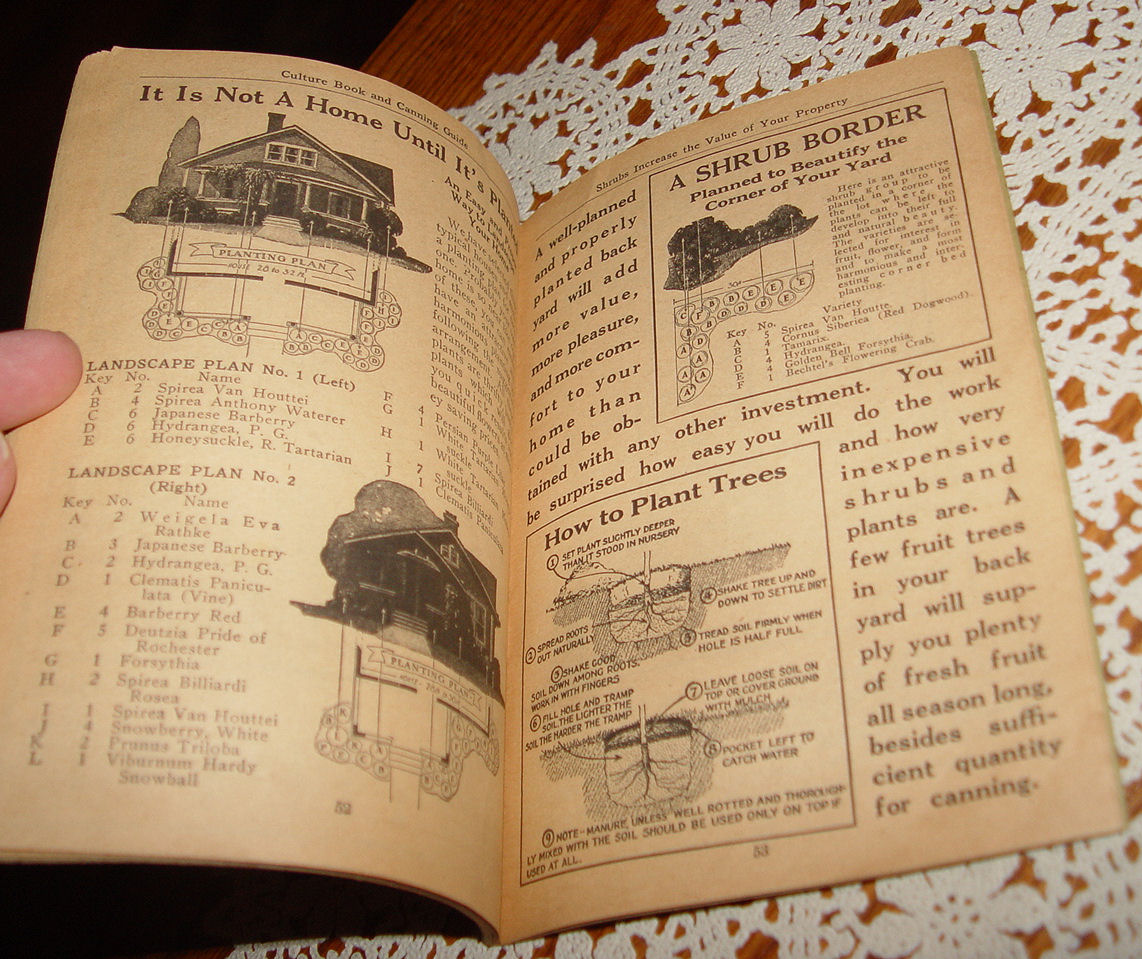 Culture Book and Canning Guide
It Is Not A Home Until It's
An Easy
Way to
Your
We have
typical
PLANTING PLAN
HOUSE 28 to 32 Ft.
LANDSCAPE PLAN No. 1 (Left)
Key No. Name
A 2 Spirea Van Houttei
B 4 Spirea Anthony Waterer
C 6 Japanese Barberry
D 6 Hydrangea, P. G.
E 6 Honeysuckle, R. Tartarian
F 4 Persian
G 1
H 1
I 7 Spirea Billiardi
J 1 Clematis
LANDSCAPE PLAN No. 2
(Right)
Key No. Name
A 2 Weigela Eva
Rathke
B 3 Japanese Barberry
C 2 Hydrangea, P. G.
D 1 Clematis Panicu-
lata (Vine)
E 4 Barberry Red
F 5 Deutzia Pride of
Rochester
G 1 Forsythia
H 2 Spirea Billiardi
Rosea
I 1 Spirea Van Houttei
J 4 Snowberry, White
K Prunus Triloba
L 1 Viburnum Hardy
Snowball
PLANTING PLAN
52
Shrubs Increase the Value of Your Property
A well-planned
and properly
planted back
yard will add
more value,
more pleasure,
and more com-
fort to your
home than
could be ob-
tained with any other investment. You will
be surprised how easy you will do the work
A SHRUB BORDER
Planned to Beautify the
Corner of Your Yard
Here is an attractive
shrub group to be
planted in a corner of
the lot where the
plants can be left to
develop into their full
and natural beauty.
The varieties are se-
lected for interest in
fruit, flower, and form
and to make a most
harmonious and inter-
esting corner bed
planting.
Key No. Variety
A 5 Spirea Van Houtte.
B 4 Cornus Siberica (Red Dogwood).
C 1 Tamarix.
D 4 Hydrangea.
E 4 Golden Bell Forsythia.
F 1 Bechtel's Flowering Crab.
and how very
inexpensive
shrubs and
plants are. A
few fruit trees
in your back
yard will sup-
ply you plenty
of fresh fruit
all season long,
besides suffi-
cient quantity
for canning.
How to Plant Trees
1 SET PLANT SLIGHTLY DEEPER
THAN IT STOOD IN NURSERY
2 SPREAD ROOTS
OUT NATURALLY
3 SHAKE GOOD
SOIL DOWN AMONG ROOTS.
WORK IN WITH FINGERS
4 SHAKE TREE UP AND
DOWN TO SETTLE DIRT
5 TREAD SOIL FIRMLY WHEN
HOLE IS HALF FULL
6 FILL HOLE AND TRAMP
SOIL. THE LIGHTER THE
SOIL THE HARDER THE TRAMP
7 LEAVE LOOSE SOIL ON
TOP OR COVER GROUND
WITH MULCH
8 POCKET LEFT TO
CATCH WATER
9 NOTE-MANURE, UNLESS WELL ROTTED AND THOROUGH-
LY MIXED WITH THE SOIL SHOULD BE USED ONLY ON TOP IF
USED AT ALL.
53